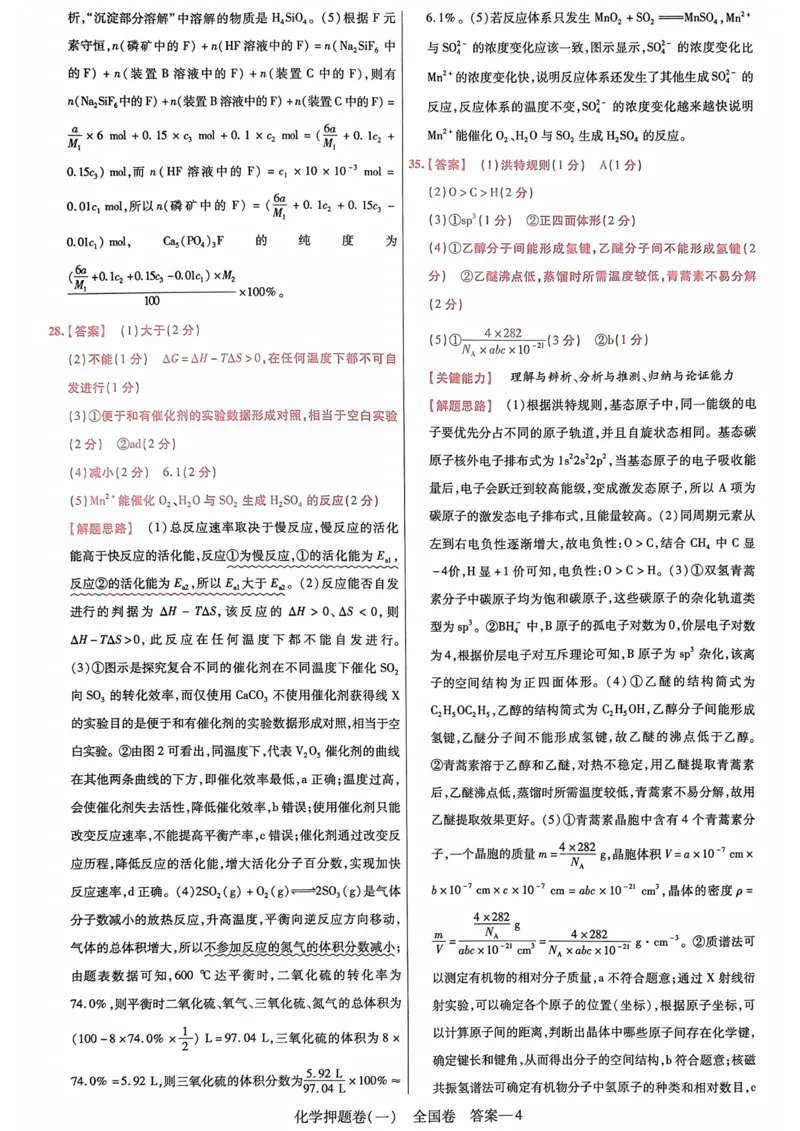 析,“沉淀部分溶解”中溶解的物质是 H₄SiO₄。(5)根据 F 元
素守恒,n(磷矿中的 F) + n(HF 溶液中的 F) = n(Na₂SiF₆ 中
的 F) + n(装置 B 溶液中的 F) + n(装置 C 中的 F),则有
n(Na₂SiF₆中的 F) +n(装置 B 溶液中的 F) +n(装置 C 中的 F) =
a/M₁ × 6 mol + 0. 15 × c₃ mol + 0. 1 × c₂ mol = (6a/M₁ + 0. 1c₂ +
0.15c₃) mol,而 n (HF 溶液中的 F) = c₁ × 10 × 10⁻³ mol =
0.01c₁ mol,所以 n(磷矿中的 F) = (6a/M₁ + 0. 1c₂ + 0. 15c₃ -
0.01c₁) mol, Ca₅(PO₄)₃F 的 纯 度 为
(6a/M₁ +0.1c₂ +0.15c₃ -0.01c₁) ×M₂/100 ×100%。
28.【答案】 (1)大于(2 分)
(2)不能(1 分) ΔG = ΔH - TΔS > 0,在任何温度下都不可自
发进行(1 分)
(3)①便于和有催化剂的实验数据形成对照,相当于空白实验
(2 分) ②ad(2 分)
(4)减小(2 分) 6. 1(2 分)
(5)Mn²⁺能催化 O₂、H₂O 与 SO₂ 生成 H₂SO₄ 的反应(2 分)
【解题思路】 (1)总反应速率取决于慢反应,慢反应的活化
能高于快反应的活化能,反应①为慢反应,①的活化能为 Eₐ₁,
反应②的活化能为 Eₐ₂,所以 Eₐ₁大于 Eₐ₂。(2)反应能否自发
进行的判据为 ΔH - TΔS,该反应的 ΔH > 0、ΔS < 0,则
ΔH-TΔS>0,此反应在任何温度下都不能自发进行。
(3)①图示是探究复合不同的催化剂在不同温度下催化 SO₂
向 SO₃ 的转化效率,而仅使用 CaCO₃ 不使用催化剂获得线 X
的实验目的是便于和有催化剂的实验数据形成对照,相当于空
白实验。②由图 2 可看出,同温度下,代表 V₂O₅ 催化剂的曲线
在其他两条曲线的下方,即催化效率最低,a 正确;温度过高,
会使催化剂失去活性,降低催化效率,b 错误;使用催化剂只能
改变反应速率,不能提高平衡产率,c 错误;催化剂通过改变反
应历程,降低反应的活化能,增大活化分子百分数,实现加快
反应速率,d 正确。(4)2SO₂(g) + O₂(g)⇌2SO₃(g)是气体
分子数减小的放热反应,升高温度,平衡向逆反应方向移动,
气体的总体积增大,所以不参加反应的氮气的体积分数减小;
由题表数据可知,600 ℃达平衡时,二氧化硫的转化率为
74.0%,则平衡时二氧化硫、氧气、三氧化硫、氮气的总体积为
(100 -8 ×74.0% × 1/2) L =97.04 L,三氧化硫的体积为 8 ×
74.0% =5.92 L,则三氧化硫的体积分数为5.92 L/97.04 L ×100% ≈
6.1%。(5)若反应体系只发生 MnO₂ + SO₂ ══MnSO₄,Mn²⁺
与 SO₄²⁻ 的浓度变化应该一致,图示显示,SO₄²⁻ 的浓度变化比
Mn²⁺的浓度变化快,说明反应体系还发生了其他生成 SO₄²⁻ 的
反应,反应体系的温度不变,SO₄²⁻ 的浓度变化越来越快说明
Mn²⁺能催化 O₂、H₂O 与 SO₂ 生成 H₂SO₄ 的反应。
35.【答案】 (1)洪特规则(1 分) A(1 分)
(2)O > C > H(2 分)
(3)①sp³(1 分) ②正四面体形(2 分)
(4)①乙醇分子间能形成氢键,乙醚分子间不能形成氢键(2
分) ②乙醚沸点低,蒸馏时所需温度较低,青蒿素不易分解
(2 分)
(5)① 4 ×282/N_A × abc ×10⁻²¹ (3 分) ②b(1 分)
【关键能力】 理解与辨析、分析与推测、归纳与论证能力
【解题思路】 (1)根据洪特规则,基态原子中,同一能级的电
子要优先分占不同的原子轨道,并且自旋状态相同。基态碳
原子核外电子排布式为 1s²2s²2p²,当基态原子的电子吸收能
量后,电子会跃迁到较高能级,变成激发态原子,所以 A 项为
碳原子的激发态电子排布式,且能量较高。(2)同周期元素从
左到右电负性逐渐增大,故电负性:O > C,结合 CH₄ 中 C 显
-4价,H 显 +1 价可知,电负性:O > C > H。(3)①双氢青蒿
素分子中碳原子均为饱和碳原子,这些碳原子的杂化轨道类
型为 sp³。②BH₄⁻ 中,B 原子的孤电子对数为 0,价层电子对数
为 4,根据价层电子对互斥理论可知,B 原子为 sp³ 杂化,该离
子的空间结构为正四面体形。(4)①乙醚的结构简式为
C₂H₅OC₂H₅,乙醇的结构简式为 C₂H₅OH,乙醇分子间能形成
氢键,乙醚分子间不能形成氢键,故乙醚的沸点低于乙醇。
②青蒿素溶于乙醇和乙醚,对热不稳定,用乙醚提取青蒿素
后,乙醚沸点低,蒸馏时所需温度较低,青蒿素不易分解,故用
乙醚提取效果更好。(5)①青蒿素晶胞中含有 4 个青蒿素分
子,一个晶胞的质量 m = 4 ×282/N_A g,晶胞体积 V = a ×10⁻⁷ cm ×
b ×10⁻⁷ cm × c ×10⁻⁷ cm = abc ×10⁻²¹ cm³,晶体的密度 ρ =
m/V = (4 ×282/N_A g)/(abc ×10⁻²¹ cm³) = 4 ×282/(N_A × abc ×10⁻²¹) g · cm⁻³。②质谱法可
以测定有机物的相对分子质量,a 不符合题意;通过 X 射线衍
射实验,可以确定各个原子的位置(坐标),根据原子坐标,可
以计算原子间的距离,判断出晶体中哪些原子间存在化学键,
确定键长和键角,从而得出分子的空间结构,b 符合题意;核磁
共振氢谱法可确定有机物分子中氢原子的种类和相对数目,c
化学押题卷(一) 全国卷 答案—4